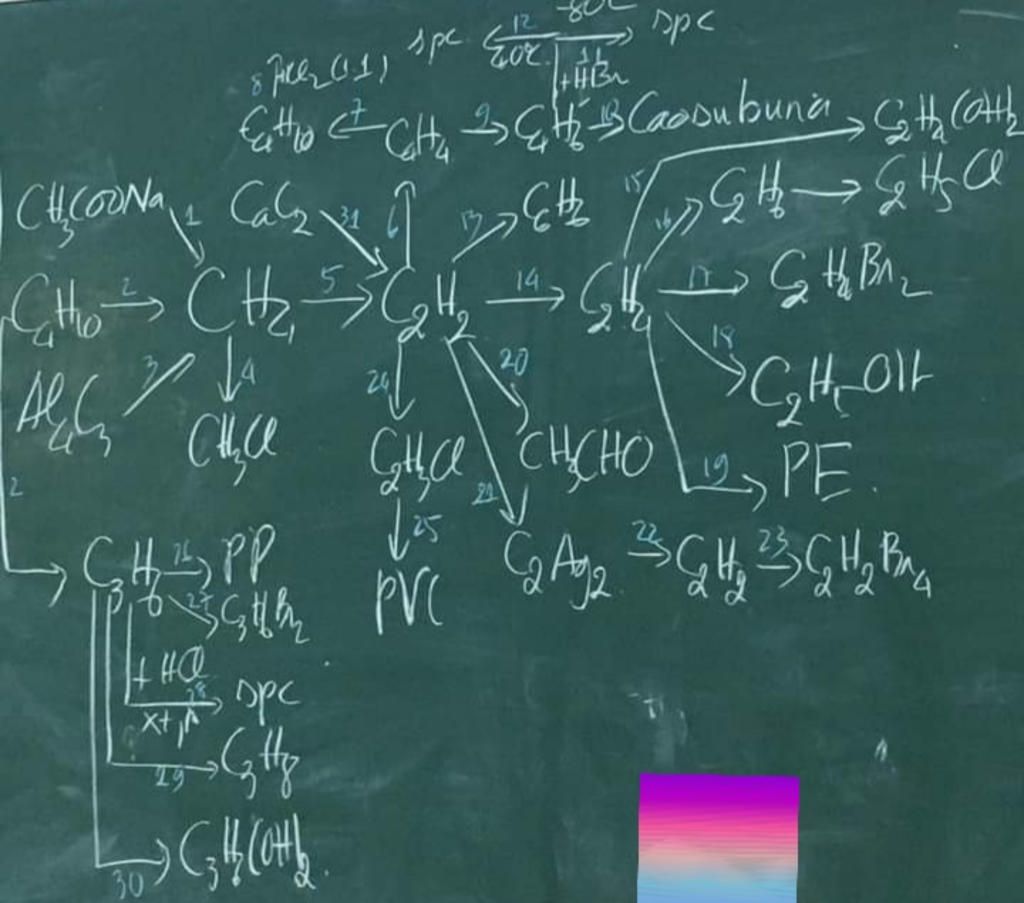 spc ← 12 -80°C → spc
40°C 11 +HBr
C4H10 ← 7 C4H4 9 → C4H6 10 → Caosubuna
C2H4(OH)2
CH3COONa 1 CaC2 31 6 13 → C6H6 15 16 C2H6 → C2H5Cl
C4H10 2 → CH4 5 → C2H2 14 → C2H4 17 → C2H4Br2
Al4C3 3 4 24 20 18 C2H5-OH
CH3Cl C2H3Cl CH3CHO 19 → PE.
2 25 21
C3H6 26 → PP PVC C2Ag2 22 → C2H2 23 → C2H2Br4
27 C3H6Br2
+ HCl
28 → spc
xt,
29 → C3H8
30 → C3H6(OH)2.